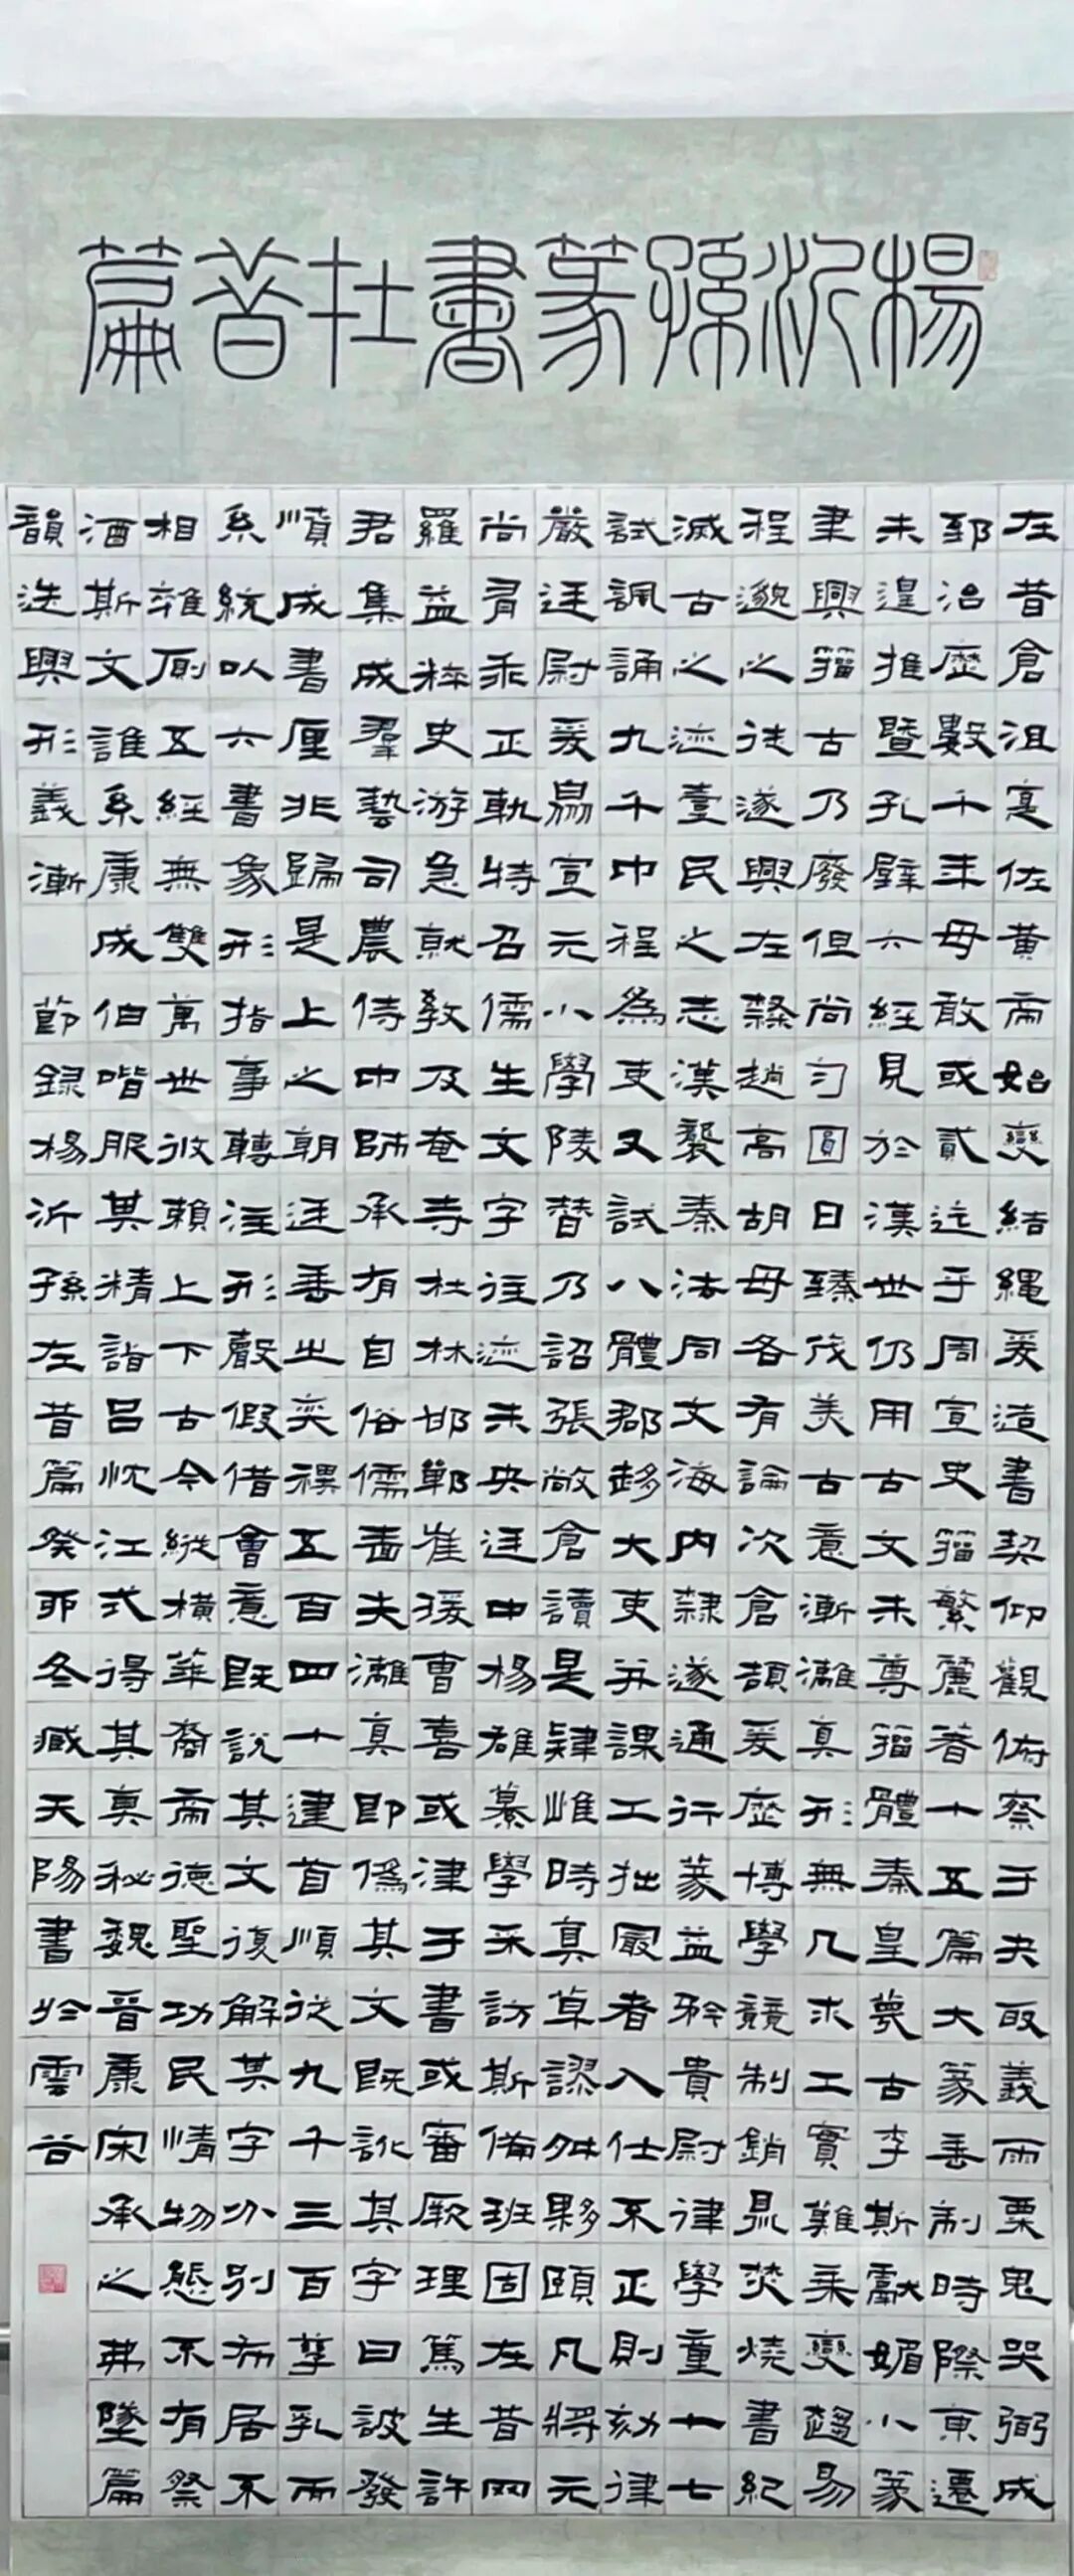 楊沂孫篆書在昔篇
在昔倉沮寔佐黃而始變結繩爰造書契仰觀俯察于夬取義雨粟鬼哭弼成
郅治歷數千年毋敢或貳迄于周宣史籀繁麗著十五篇大篆垂制時際東遷
未遑推暨孔壁六經見於漢世仍用古文未尊籀體秦皇蔑古李斯獻媚小篆
聿興籀古乃廢但尚勻圓日臻茂美古意漸漓真形無几求工實難乘變趨易
程邈之徒遂興左隸趙高胡毋各有論次倉頡爰歷博學競制銷鼎焚燒書紀
滅古之迹壹民之志漢襲秦法同文海內隸遂通行篆益矜貴尉律學童十七
試諷誦九千中程為吏又試八體郡移大吏并課工拙最者入仕不正則劾律
嚴廷尉爰易宣元小學陵替乃詔張敞倉讀是肄惟時真草謬舛夥頤凡將元
尚有乖正軌特召儒生文字往迹未央廷中楊雄纂學采訪斯備班固在昔网
羅益粹史游急就教及奄寺杜林邯鄲崔瑗曹喜或津于書或審厥理篤生許
君集成羣藝司農侍中師承有自俗儒嗇夫漓真即偽其文既訛其字曰詖發
憤成書厘非歸是上之朝廷垂之奕禩五百四十建首順從九千三百孳乳而
系統以六書象形指事轉注形聲假借會意既說其文復解其字分別布居不
相雜廁五經無雙萬世攸賴上下古今縱橫華裔而德聖功民情物態不有祭
酒斯文誰系康成伯喈服其精詣呂忱江式得其奧秘魏晉康宋承之弗墜篇
韻迭興形義漸 節錄楊沂孫在昔篇癸卯冬臧天陽書於雲谷